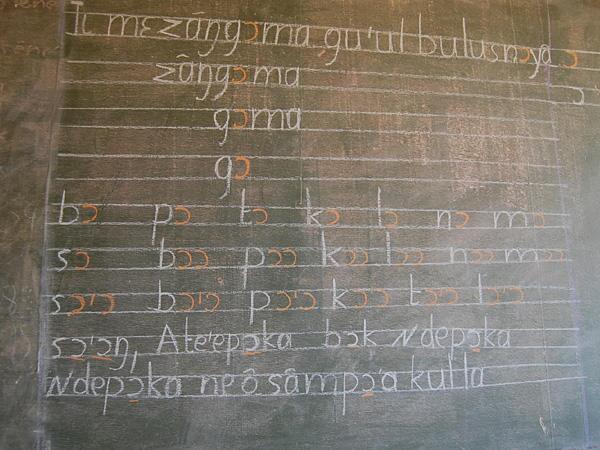 Ti mɛ zãŋgɔma gu'ul bulusnɔya ɔ
zãŋgɔma
gɔma
gɔ
bɔ pɔ tɔ kɔ lɔ nɔ mɔ
sɔ bɔɔ pɔɔ kɔɔ lɔɔ nɔɔ mɔɔ
sɔ'ɔ bɔ'ɔ pɔ'ɔ kɔɔ tɔɔ lɔɔ
sɔ'ɔŋ, Ate'epɔka bɔk N'depɔka
N'depɔka ne ô sâmpɔ'a kulta